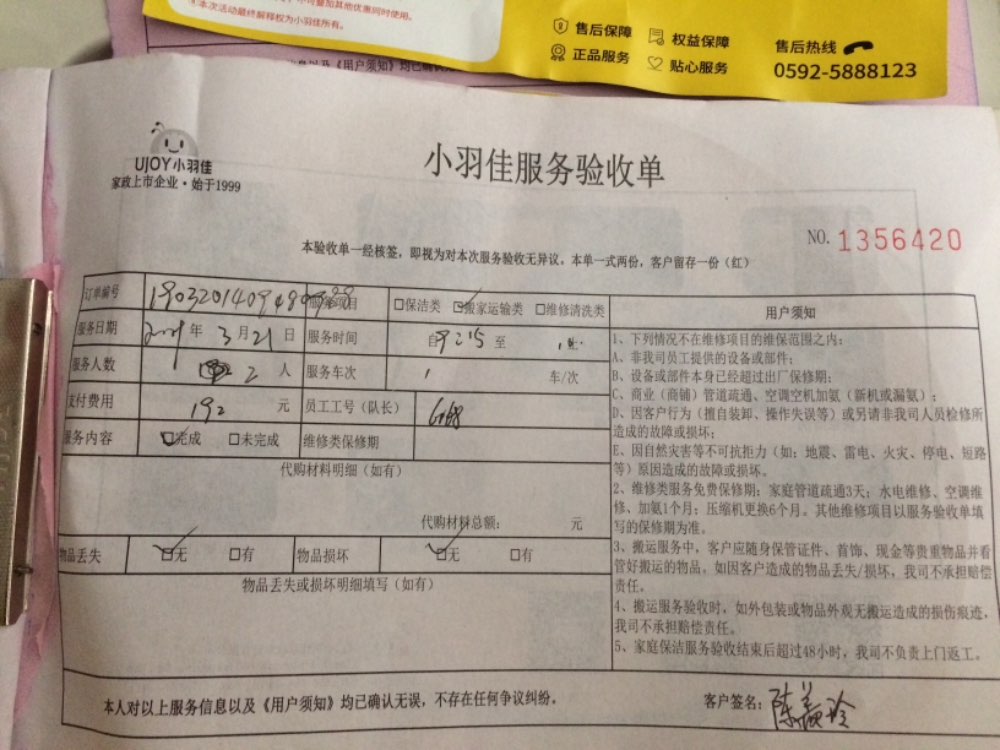 不可叠加其他优惠同时使用。
本次活动最终解释权为小羽佳所有。
售后保障
权益保障
正品服务
贴心服务
售后热线
0592-5888123
息以及《用户须知》均已确认无
UJOY小羽佳
家政上市企业·始于1999
小羽佳服务验收单
NO. 1356420
本验收单一经核签，即视为对本次服务验收无异议。本单一式两份，客户留存一份（红）
订单编号
项目 □保洁类 □搬家运输类 □维修清洗类
服务日期 年 3 月 21 日 服务时间 自 9:15 至
服务人数 2 人 服务车次 1 车/次
支付费用 192 元 员工工号（队长） 6168
服务内容 □完成 □未完成 维修类保修期
代购材料明细（如有）
代购材料总额： 元
物品丢失 □无 □有 物品损坏 □无 □有
物品丢失或损坏明细填写（如有）
用户须知
1、下列情况不在维修项目的维保范围之内：
A、非我司员工提供的设备或部件；
B、设备或部件本身已经超过出厂保修期；
C、商业（商铺）管道疏通、空调空机加氨（新机或漏氨）；
D、因客户行为（擅自装卸、操作失误等）或另请非我司人员检修所
造成的故障或损坏；
E、因自然灾害等不可抗拒力（如：地震、雷电、火灾、停电、短路
等）原因造成的故障或损坏。
2、维修类服务免费保修期：家庭管道疏通3天；水电维修、空调维
修、加氨1个月；压缩机更换6个月。其他维修项目以服务验收单填
写的保修期为准。
3、搬运服务中，客户应随身保管证件、首饰、现金等贵重物品并看
管好搬运的物品。如因客户造成的物品丢失/损坏，我司不承担赔偿
责任。
4、搬运服务验收时，如外包装或物品外观无搬运造成的损伤痕迹，
我司不承担赔偿责任。
5、家庭保洁服务验收结束后超过48小时，我司不负责上门返工。
本人对以上服务信息以及《用户须知》均已确认无误，不存在任何争议纠纷。
客户签名：